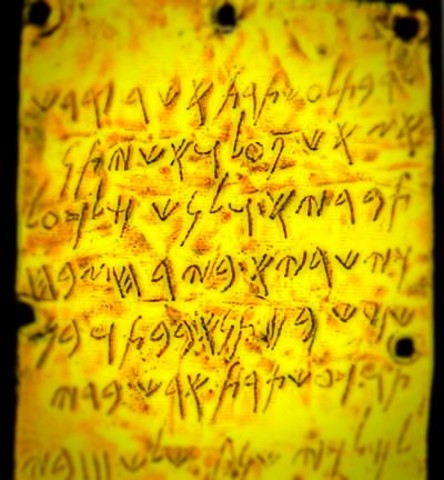 𐤋𐤓𐤁𐤕 𐤋𐤏𐤔𐤕𐤓𐤕 𐤀𐤔𐤓 𐤒𐤃𐤔
𐤀𐤆 𐤀𐤔 𐤐𐤏𐤋 𐤅𐤀𐤔 𐤉𐤕𐤍
𐤕𐤁𐤓𐤉𐤀 𐤅𐤋𐤍𐤔 𐤌𐤋𐤊 𐤏𐤋
𐤊𐤉𐤔𐤓𐤉𐤀 𐤁𐤉𐤓𐤇 𐤆𐤁𐤇
𐤔𐤌𐤔 𐤁𐤌𐤕𐤍𐤀 𐤁𐤁𐤕 𐤅𐤁𐤍
𐤕𐤅 𐤊𐤏𐤔𐤕𐤓𐤕 𐤀𐤓𐤔 𐤁𐤃𐤉
𐤋𐤌𐤋𐤊𐤉 𐤔𐤍𐤕 𐤔𐤋𐤔 𐤛 𐤁𐤉